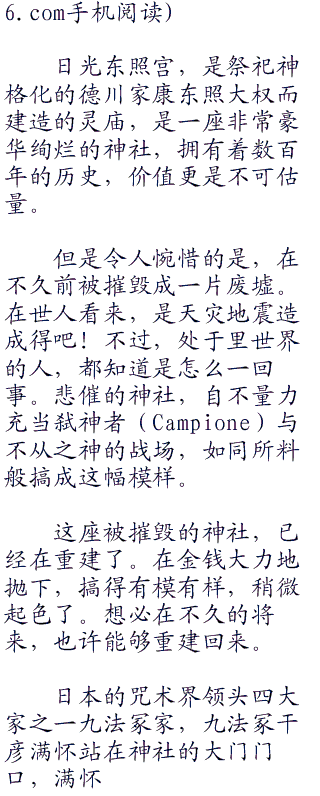 6.com手机阅读)
日光东照宫，是祭祀神
格化的德川家康东照大权而
建造的灵庙，是一座非常豪
华绚烂的神社，拥有着数百
年的历史，价值更是不可估
量。
但是令人惋惜的是，在
不久前被摧毁成一片废墟。
在世人看来，是天灾地震造
成得吧！不过，处于里世界
的人，都知道是怎么一回
事。悲催的神社，自不量力
充当弑神者（Campione）与
不从之神的战场，如同所料
般搞成这幅模样。
这座被摧毁的神社，已
经在重建了。在金钱大力地
抛下，搞得有模有样，稍微
起色了。想必在不久的将
来，也许能够重建回来。
日本的咒术界领头四大
家之一九法冢家，九法冢干
彦满怀站在神社的大门门
口，满怀